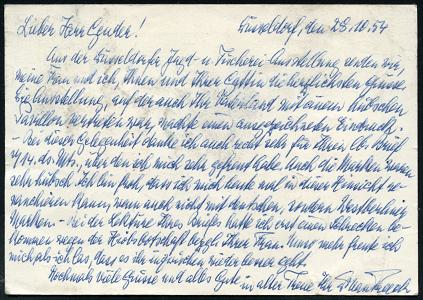 Lieber Herr Gender! Düsseldorf, den 28.10.54
Aus der Düsseldorfer Jagd- u Fischerei Ausstellung senden wir,
meine Frau und ich, Ihnen und Ihrer Gattin die herzlichsten Grüsse.
Die Ausstellung, auf der auch Ihr Vaterland mit einem hübschen
Pavillon vertreten war, machte einen ausgezeichneten Eindruck.
- Bei dieser Gelegenheit danke ich auch recht sehr für Ihren Brief
14. ds. Mts., über den ich mich sehr gefreut habe. Auch die Marken waren
sehr hübsch. Ich bin froh, dass ich mich heute mal in dieser Hinsicht re-
vanchieren kann, wenn auch nicht mit deutschen, sondern Westberliner
Marken. - Bei der Lektüre Ihres Briefes hatte ich erst einen Schrecken be-
kommen wegen der Hiobsbotschaft bezgl. Ihrer Frau. Umso mehr freute ich
mich als ich las, dass es der inzwischen wieder besser geht.
Nochmals viele Grüsse und alles Gute in alter Treue Ihr